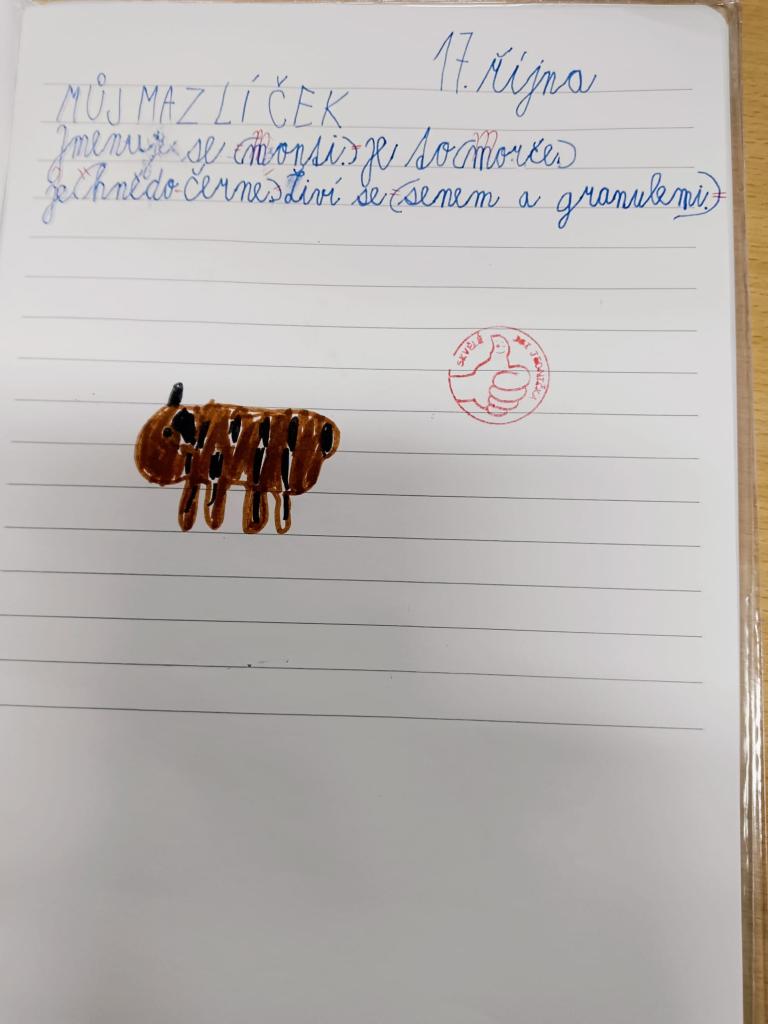 17. října
MŮJ MAZLÍČEK
Jmenuje se (monti.) je to (morče.)
Je (hnědo-černé.) Živí se (senem a granulemi.)
SKVĚLÉ JSI JEDNIČKA